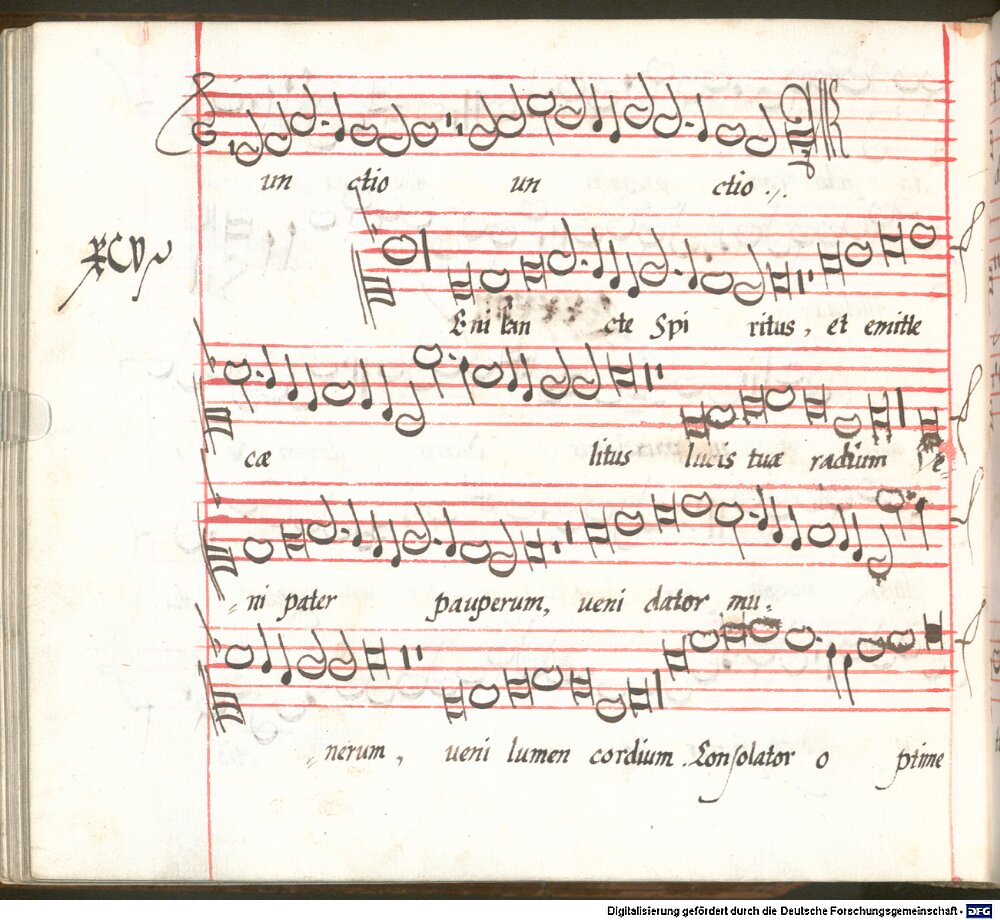 un ctio un ctio
XCV
Eni san cte Spi ritus, et emitte
cæ litus lucis tuæ radium Ve
ni pater pauperum, ueni dator mu.
nerum, ueni lumen cordium. Consolator o ptime
Digitalisierung gefördert durch die Deutsche Forschungsgemeinschaft - DFG